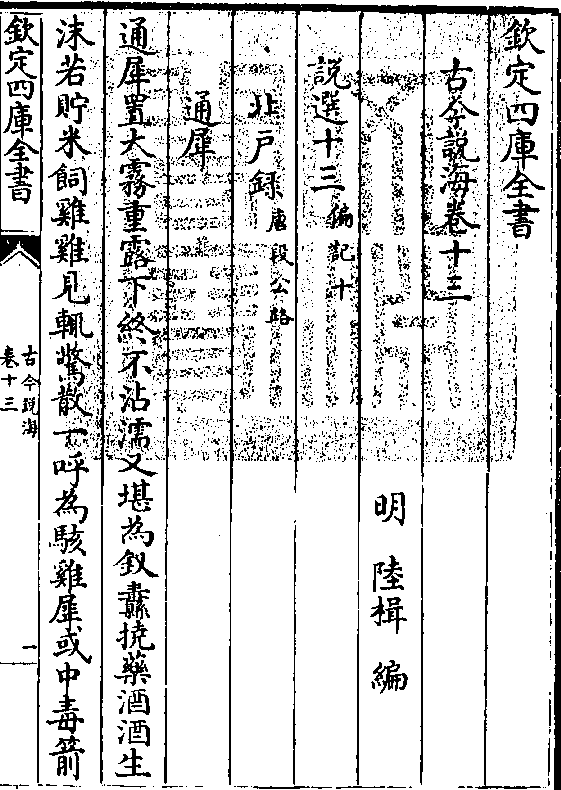 欽定四庫全書
古今說海卷十三
明 陸楫 編
說選十三 偏記十
北戶録 唐段公路
通犀
通犀置大霧重露下終不沾濡又堪為釵纛撓藥酒酒生
沫若貯米飼雞雞見輒驚散一呼為駭雞犀或中毒箭
欽定四庫全書
古今說海
卷十三
一